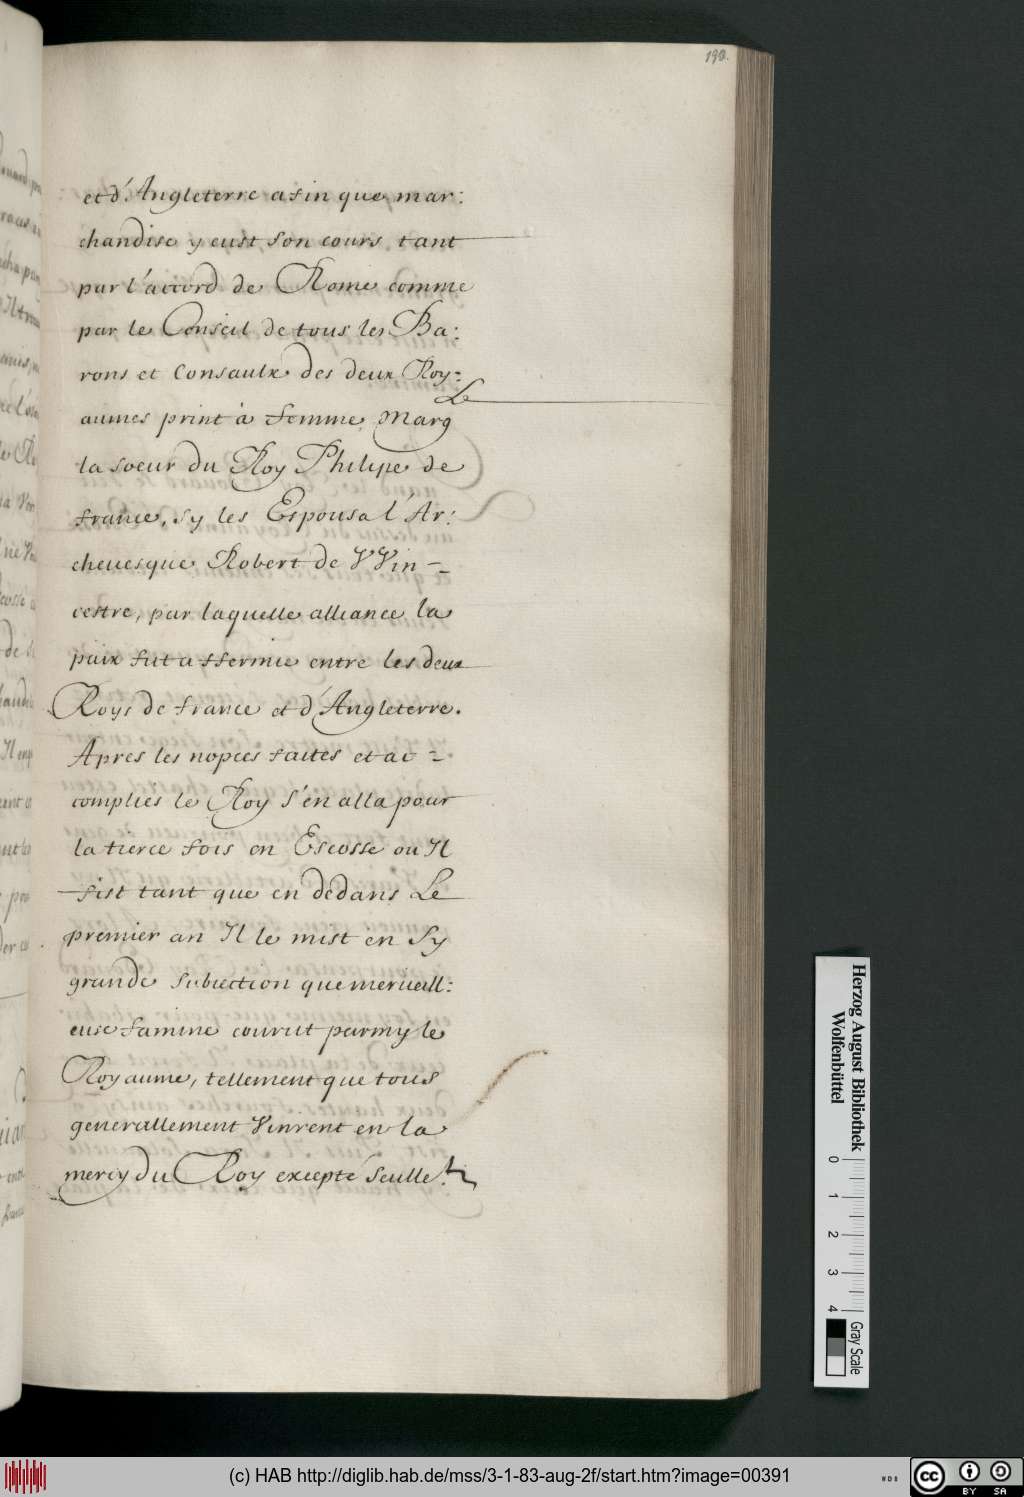 190.
et d'Angleterre afin que mar:
chandise y eust son cours tant
par l'accord de Rome comme
par le Conseil de tous les Ba:
rons et Consaulx des deux Roy:
aumes print à femme Marg
la soeur du Roy Philipe de
france, sy les Espousa l'Ar:
cheuesque Robert de VVin-
cestre, par laquelle alliance la
paix fut affermie entre les deux
Roys de france et d'Angleterre.
Apres les nopces faites et ac-
complies le Roy s'en alla pour
la tierce fois en Escosse ou Il
fist tant que en dedans Le
premier an Il le mist en Sy
grande subiection que merueill:
euse famine courut parmy le
Royaume, tellement que tous
generallement Vinrent en la
mercy du Roy excepté seulle:
Herzog August Bibliothek
Wolfenbüttel
0 1 2 3 4
Gray Scale
(c) HAB http://diglib.hab.de/mss/3-1-83-aug-2f/start.htm?image=00391
WDB
cc
BY SA